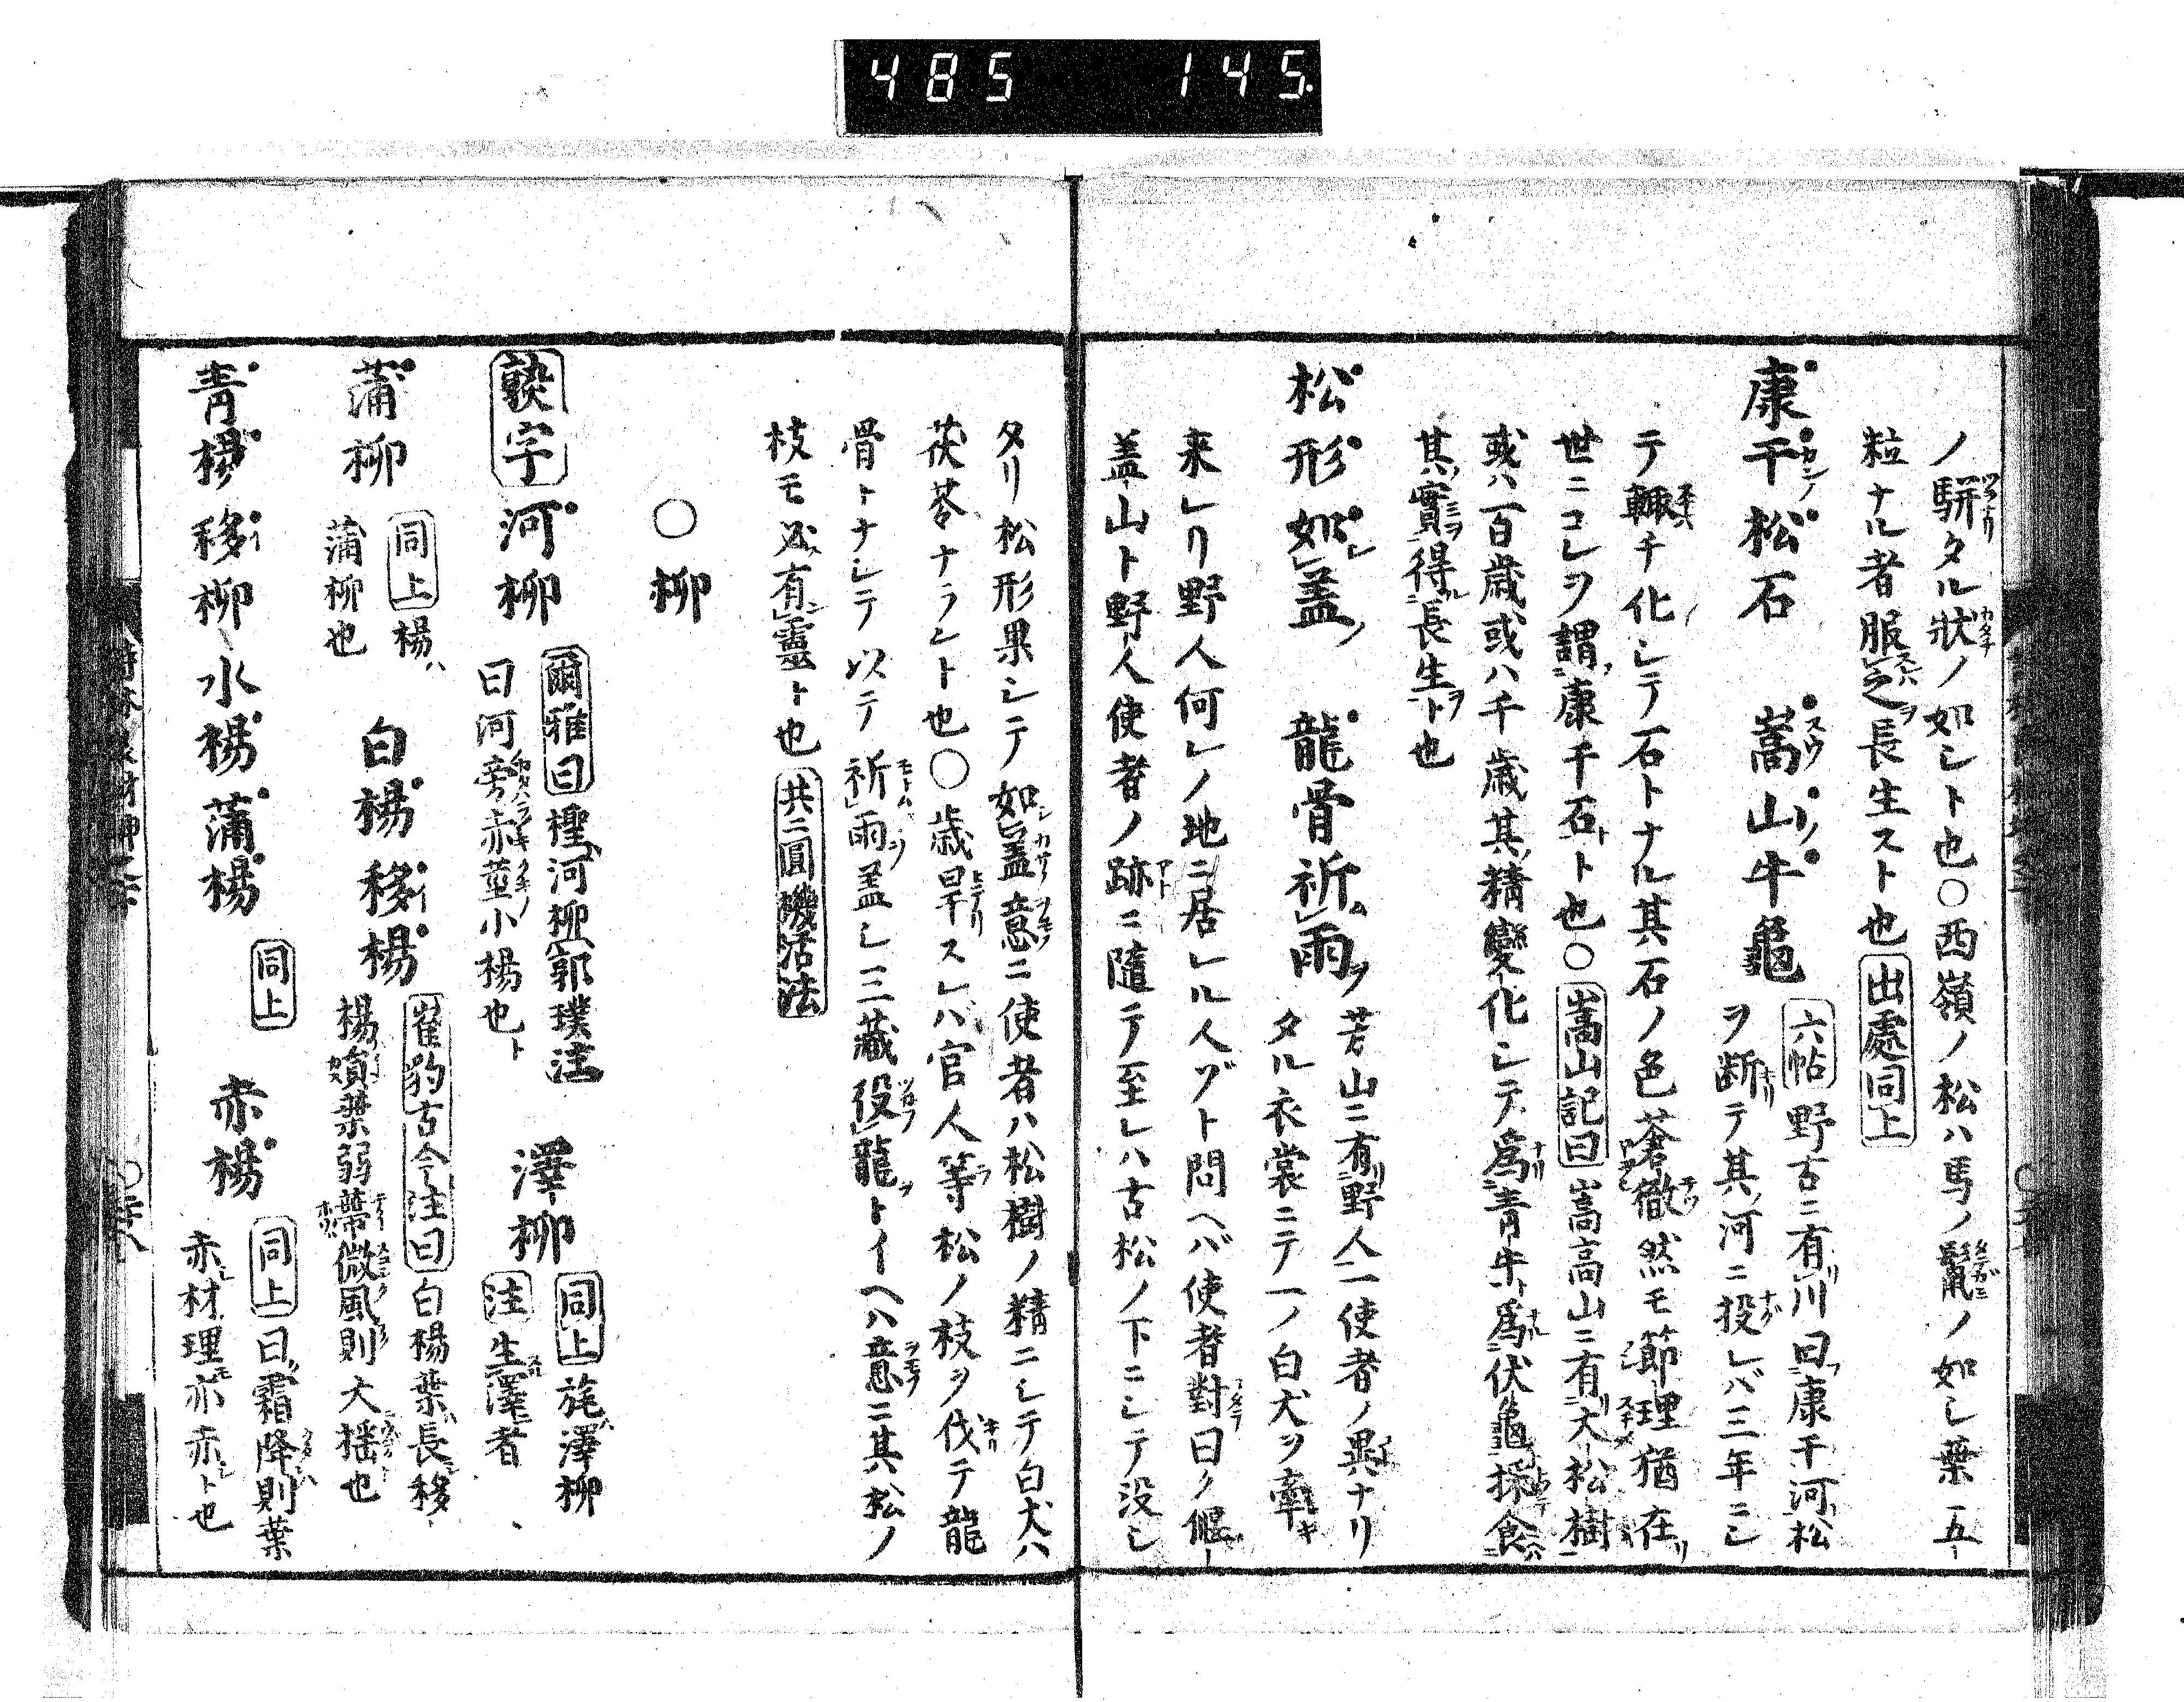 485 145.
ノ駢タル状ノ如シト也○西嶺ノ松ハ馬ノ鬣ノ如シ葉五
粒ナル者服之長生スト也出處同上
康干松石 嵩山牛龜 六帖野古ニ有川曰康干河松
ヲ断テ其河ニ投レバ三年ニシ
テ輙チ化シテ石トナル其石ノ色蒼徹然モ節理猶在
世ニコレヲ謂康千石ト也○嵩山記曰嵩高山ニ有大松樹
或ハ百歳或ハ千歳其精變化シテ為青牛為伏龜採食
其實得長生ト也
松形如蓋 龍骨祈雨 芳山ニ有野人一使者ノ異ナリ
タル衣裳ニテ一ノ白犬ヲ牽キ
来レリ野人何レノ地ニ居レル人ゾト問ヘバ使者對曰ク偃
蓋山ト野人使者ノ跡ニ隨テ至レハ古松ノ下ニシテ没シ
タリ松形果シテ如蓋意ニ使者ハ松樹ノ精ニシテ白犬ハ
茯苓ナラント也○歳旱スレバ官人等松ノ枝ヲ伐テ龍
骨トナシテ以テ祈雨蓋シ三藏役龍トイヘハ意ニ其松ノ
枝モ必有靈ト也共ニ圓機活法
○柳
歎字 河柳 爾雅曰檉河柳郭璞注
曰河旁赤莖小楊也ト
澤柳 同上旄澤柳
注生澤者
蒲柳 同上楊ハ
蒲柳也
白楊 移楊 崔豹古今注曰白楊葉長移
楊葉弱蔕微風則大揺也
青楊 移柳 水楊 蒲楊 同上
赤楊 同上曰霜降則葉
赤材理亦赤ト也